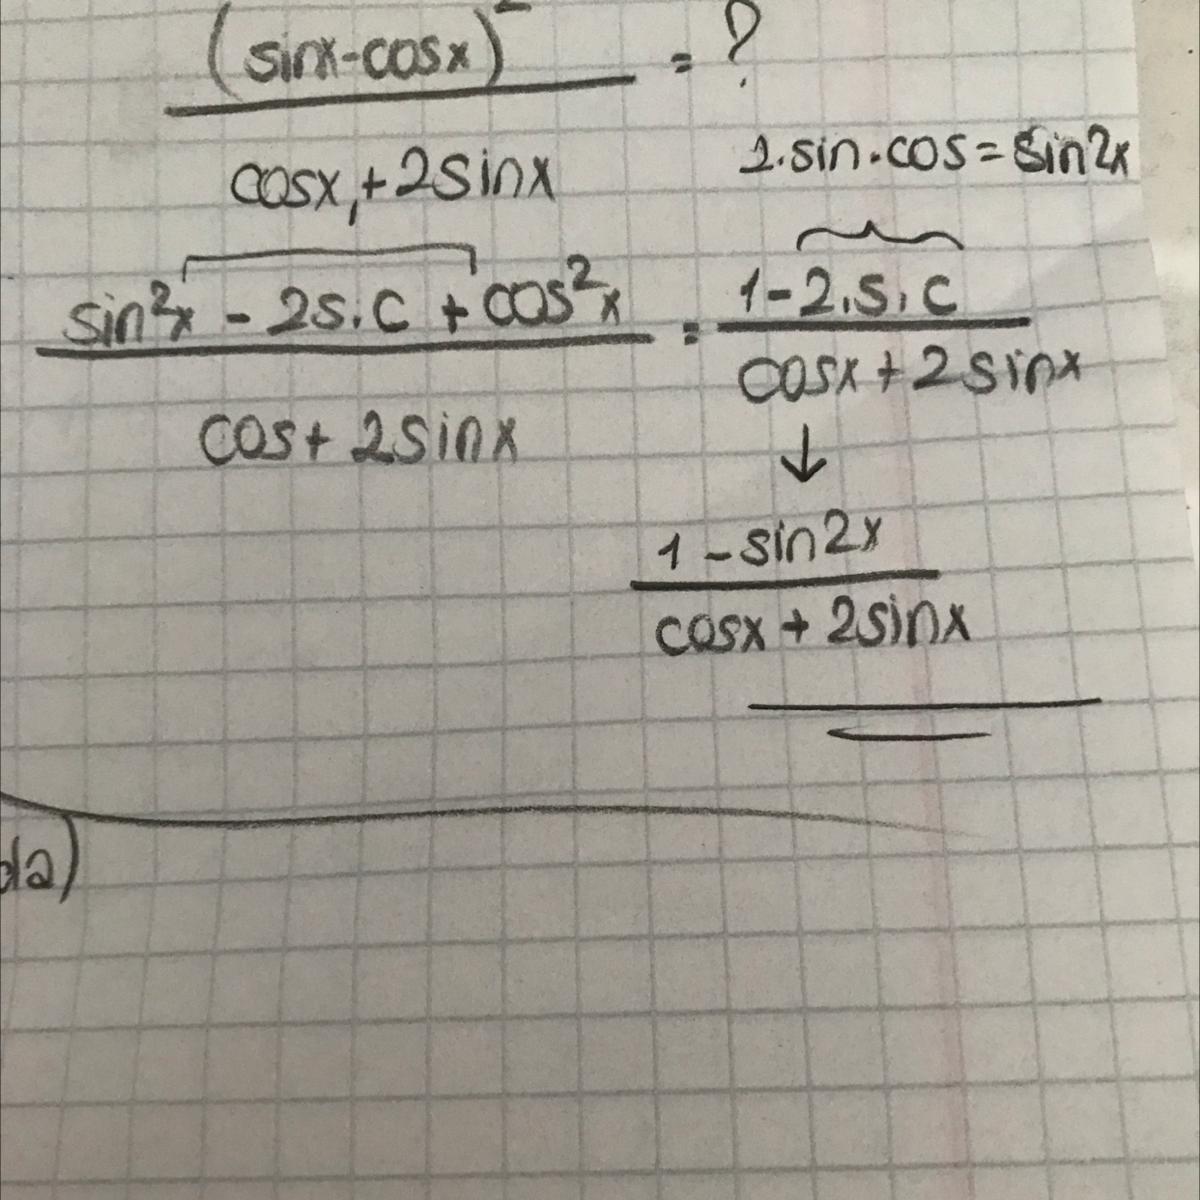 (sinx-cosx)² = ?
cosx + 2sinx
2.sin.cos = sin2x
sin²x - 2s.c + cos²x = 1 - 2.s.c
cos + 2sinx cosx + 2sinx
↓
1 - sin2x
cosx + 2sinx
da)